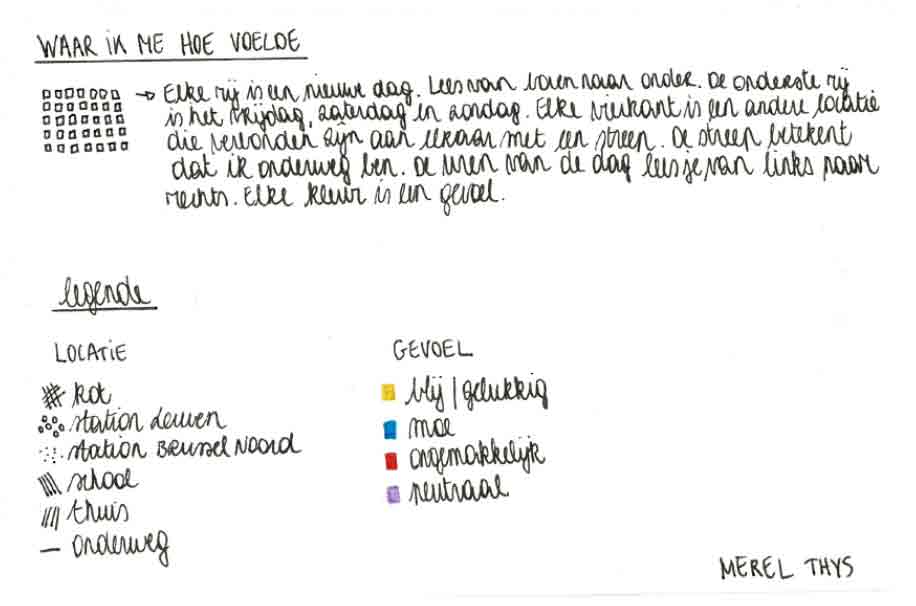 WAAR IK ME HOE VOELDE
→ Elke rij is een nieuwe dag. Lees van boven naar onder. De onderste rij
is het vrijdag, zaterdag en zondag. Elke vierkant is een andere locatie
die verbonden zijn aan elkaar met een streep. De streep betekent
dat ik onderweg ben. De uren van de dag lees je van links naar
rechts. Elke kleur is een gevoel.
legende
LOCATIE
kot
station Leuven
station BRussel Noord
school
thuis
— onderweg
GEVOEL
blij / gelukkig
moe
ongemakkelijk
neutraal
MEREL THYS